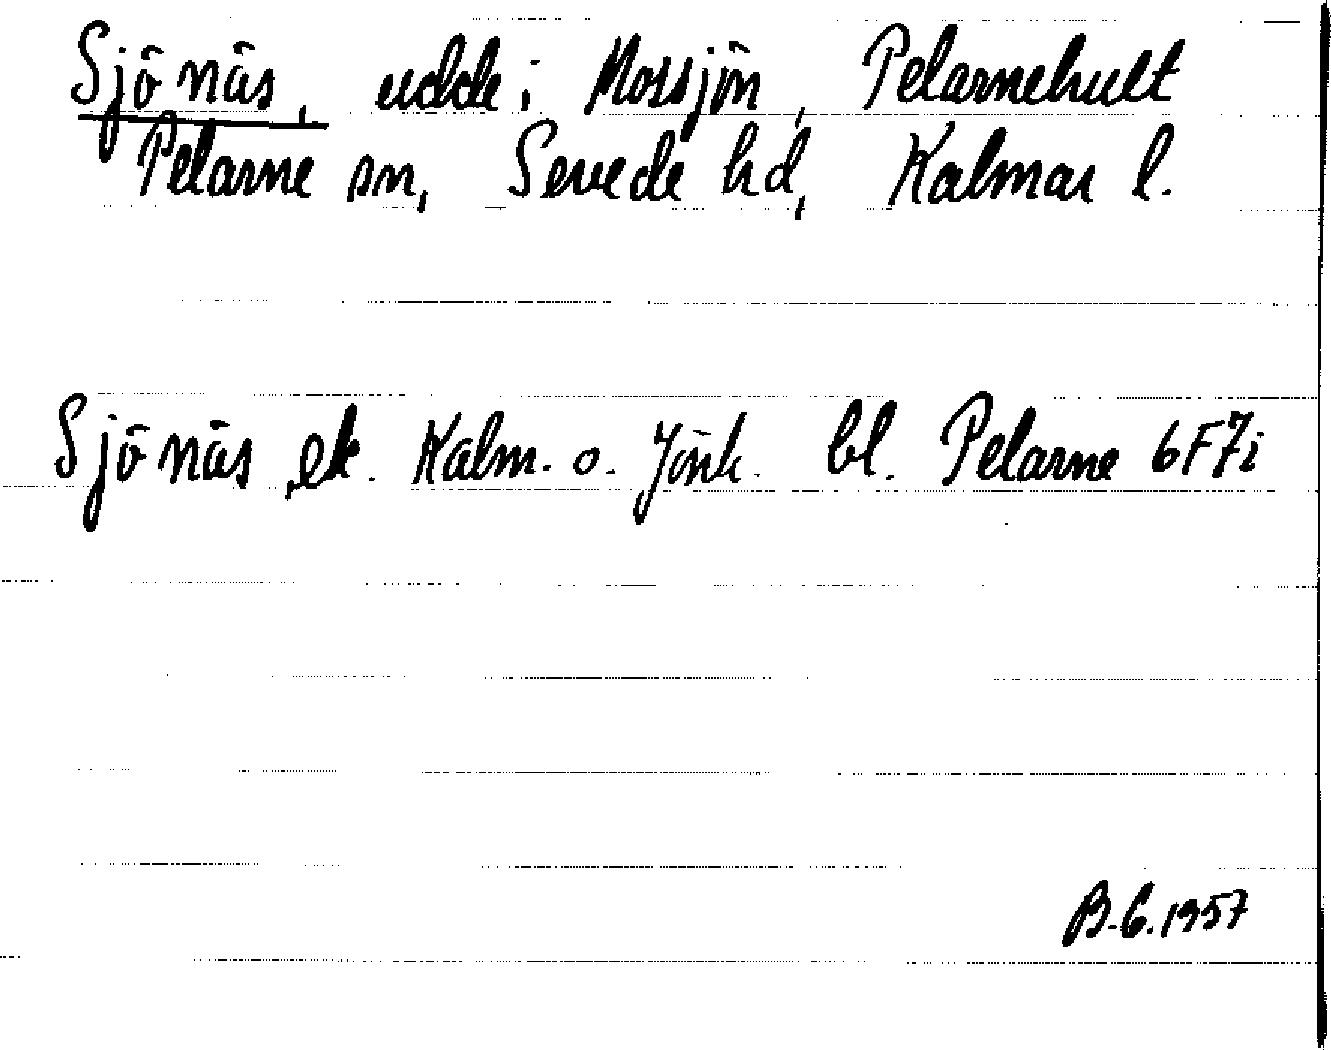 Sjönäs, udde i Mossjön, Pelarnehult
Pelarne sn, Sevede hd, Kalmar l.
Sjönäs ek. Kalm. o. Jönk. bl. Pelarne 6F7i
B.C. 1957